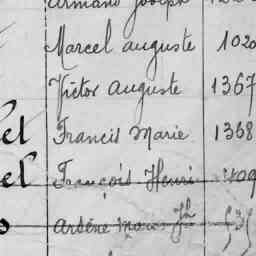 Armand Joseph
Marcel Auguste 1020
Victor Auguste 1367
el Francis Marie 1338
el François Henri 409
Arsène Jh